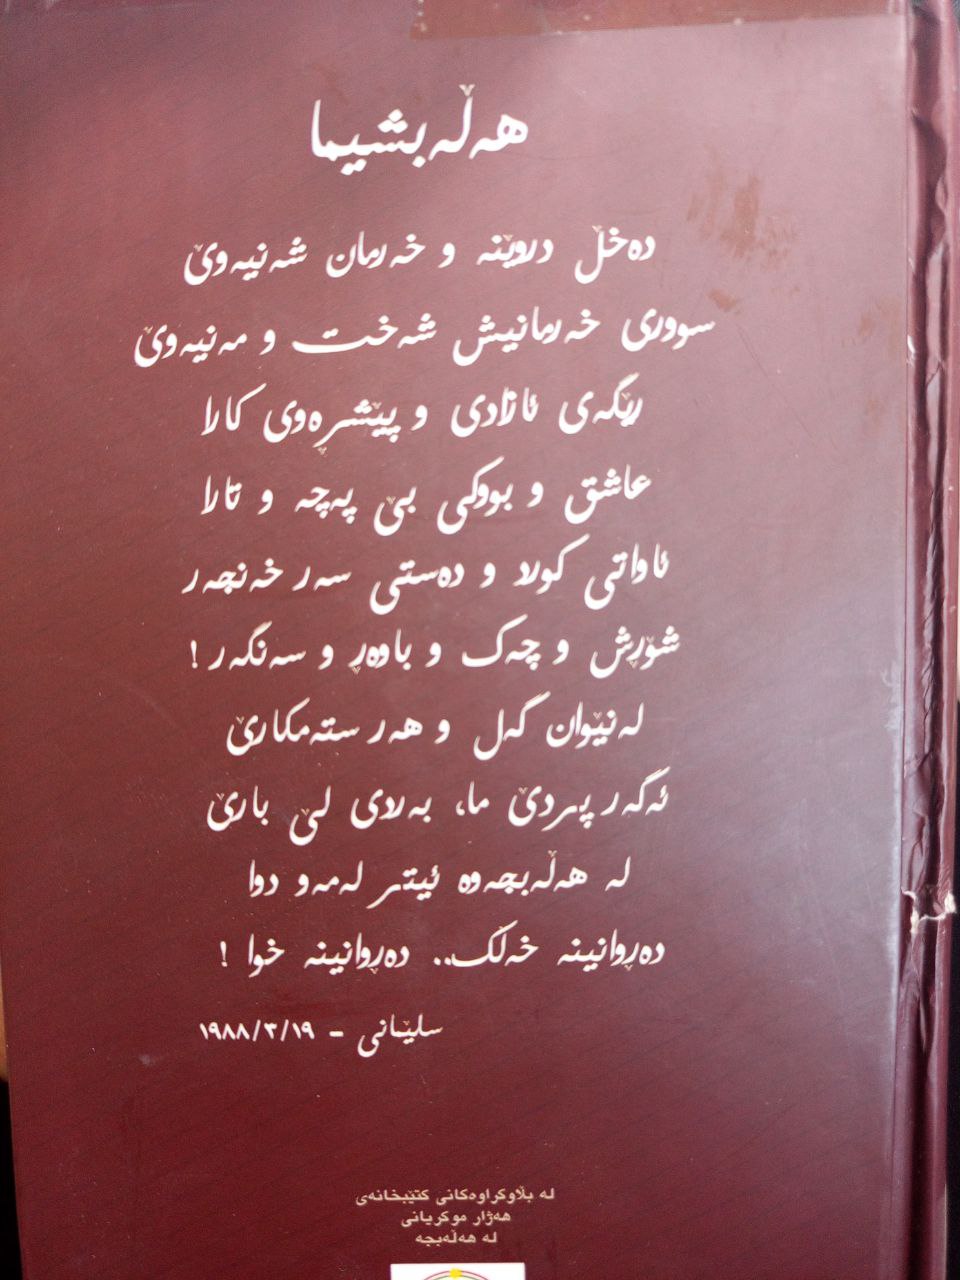 هەڵەبشیما
دەخڵ دروێنە و خەرمان شەنیەوێ
سووری خەرمانیش شەخت و مەنیەوێ
رێگەی ئازادی و پێشڕەوی کارا
عاشق و بووکی بێ پەچە و تارا
ئاواتی کولاد و دەستی سەر خەنجەر
شۆڕش و چەک و باوەڕ و سەنگەر!
لەنێوان گەل و هەر ستەمکارێ
ئەگەر پردێ ما، بەردی لێ بارێ
لە هەڵەبجەوە ئیتر لەمەو دوا
دەڕوانینە خەڵک.. دەڕوانینە خوا!
سلێمانی - ١٩٨٨/٣/١٩
لە بڵاوکراوەکانی کتێبخانەی
هەژار موکریانی
لە هەڵەبجە